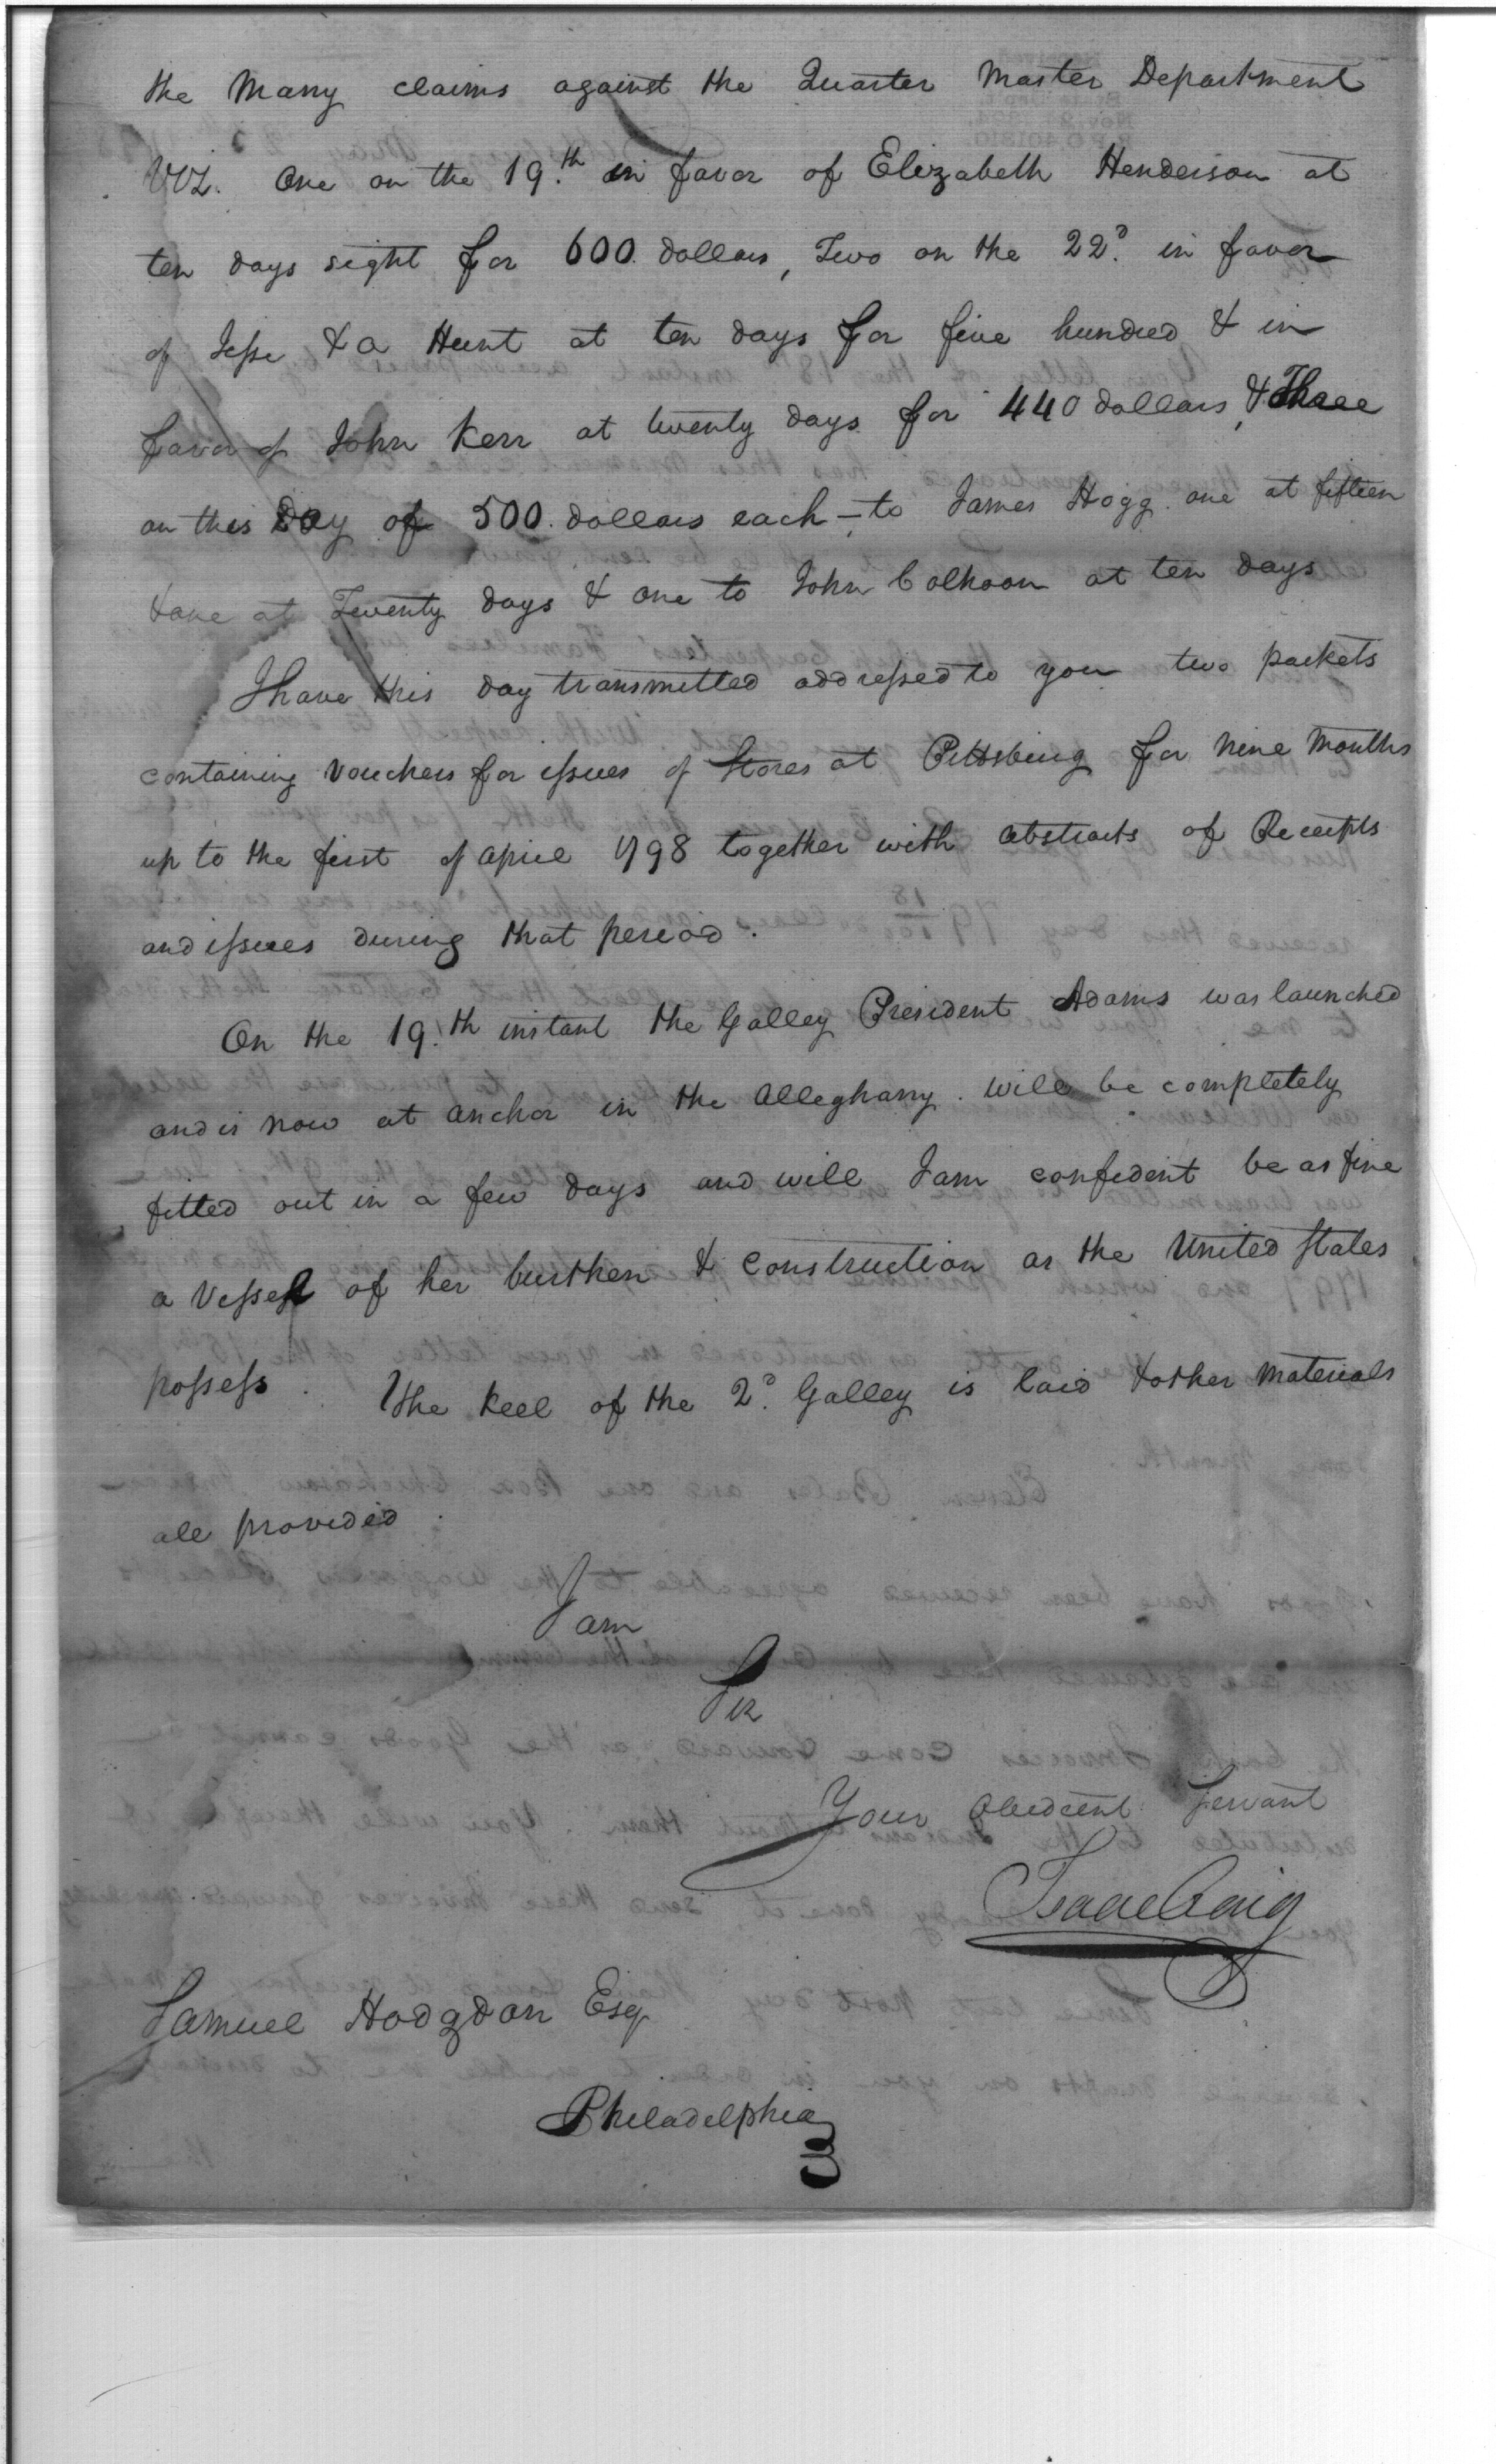 the Many claims against the Quarter Master Department
Viz. One on the 19.th in favor of Elizabeth Henderson at
ten days sight for 600 dollars, Two on the 22d. in favor
of Jesse & A Hunt at ten days for five hundred & in
favor of John Kerr at twenty days for 440 dollars, & Three
on this Day of 500 dollars each – to James Hogg one at fifteen
& one at Twenty days & one to John Colhoon at ten days
I have this day transmitted addressed to you two packets
containing Vouchers for issues of Stores at Pittsburg for Nine Months
up to the first of April 1798 together with abstracts of Receipts
and issues during that period.
On the 19.th instant the Galley President Adams was launched
and is now at anchor in the Alleghany. will be completely
fitted out in a few days and will I am confident be as fine
a Vessel of her burthen & Construction as the United States
possess. The Keel of the 2d. Galley is laid & other Materials
all provided.
I am
Sir
Your Obedient Servant
Isaac Craig
Samuel Hodgdon Esq
Philadelphia